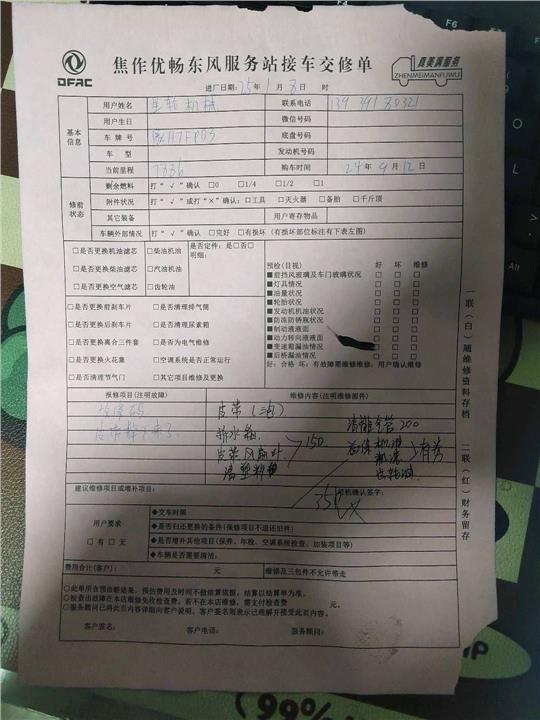 DFAC
焦作优畅东风服务站接车交修单
真美满服务
ZHENMEIMANFUWU
进厂日期：25年1月8日 时
基本信息
用户姓名
联系电话
用户生日
微信号码
车牌号
底盘号码
车型
发动机号码
当前里程 7336
购车时间 24年9月12日
修前状态
剩余燃料 打“√”确认 □0 □1/4 □1/2 □1
附件状况 打“√”或打“×”确认：□工具 □灭火器 □备胎 □千斤顶
其它装备
用户寄存物品
车辆外部情况 打“√”确认 □完好 □有损坏（有损坏部位标注有下表左图）
□是否更换机油滤芯 □柴油机油
□是否更换柴油滤芯 □汽油机油
□是否更换空气滤芯 □齿轮油
是否定件：是□否□
明细：
□是否更换前刹车片 □是否清理排气筒
□是否更换后刹车片 □是否清理尿素箱
□是否更换离合三件套 □是否为电气维修
□是否更换火花塞 □空调系统是否正常运行
□是否清理节气门 □其它项目维修及更换
预检（目视） 好 坏 维修
■前挡风玻璃及车门玻璃状况 □ □ □
■灯具情况 □ □ □
■油量状况 □ □ □
■轮胎状况 □ □ □
■发动机机油状况 □ □ □
■防冻防锈瓶状况 □ □ □
■制动液液面 □ □ □
■动力转向液液面 □ □
■变速箱漏油情况 □ □
■后桥漏油情况 □ □ □
好：合格 坏：有故障需维修维修：用户确认维修
报修项目（注明故障）
维修内容（注明维修部件）
故障码
皮带掉下来了
皮带（油）
补水箱
皮带风扇叶
150
200
350
建议维修项目或增补项目：
司机确认签字：
用户要求
□有 □无
◆交车时限
◆是否归还更换的备件（保修项目不退还旧件）
◆是否增补其他项目（保养、年检、空调系统检查、加装项目等）
◆车辆是否需要清洁：
费用合计（客户）： 元
维修及三包件不允许带走
○此单所含预估帐结果，预估费用及时间不做结算依据，结算以结算单为准。
○检查出故障在本店维修免收检查费，若不在本店维修，需支付检查费 元。
○服务顾问已将此页内容详细向客户说明，客户签名则表示已理解并接受此页内容。
客户签名： 客户电话： 服务顾问：
一联（白）随维修资料存档
二联（红）财务留存
F6
Alt
(99%